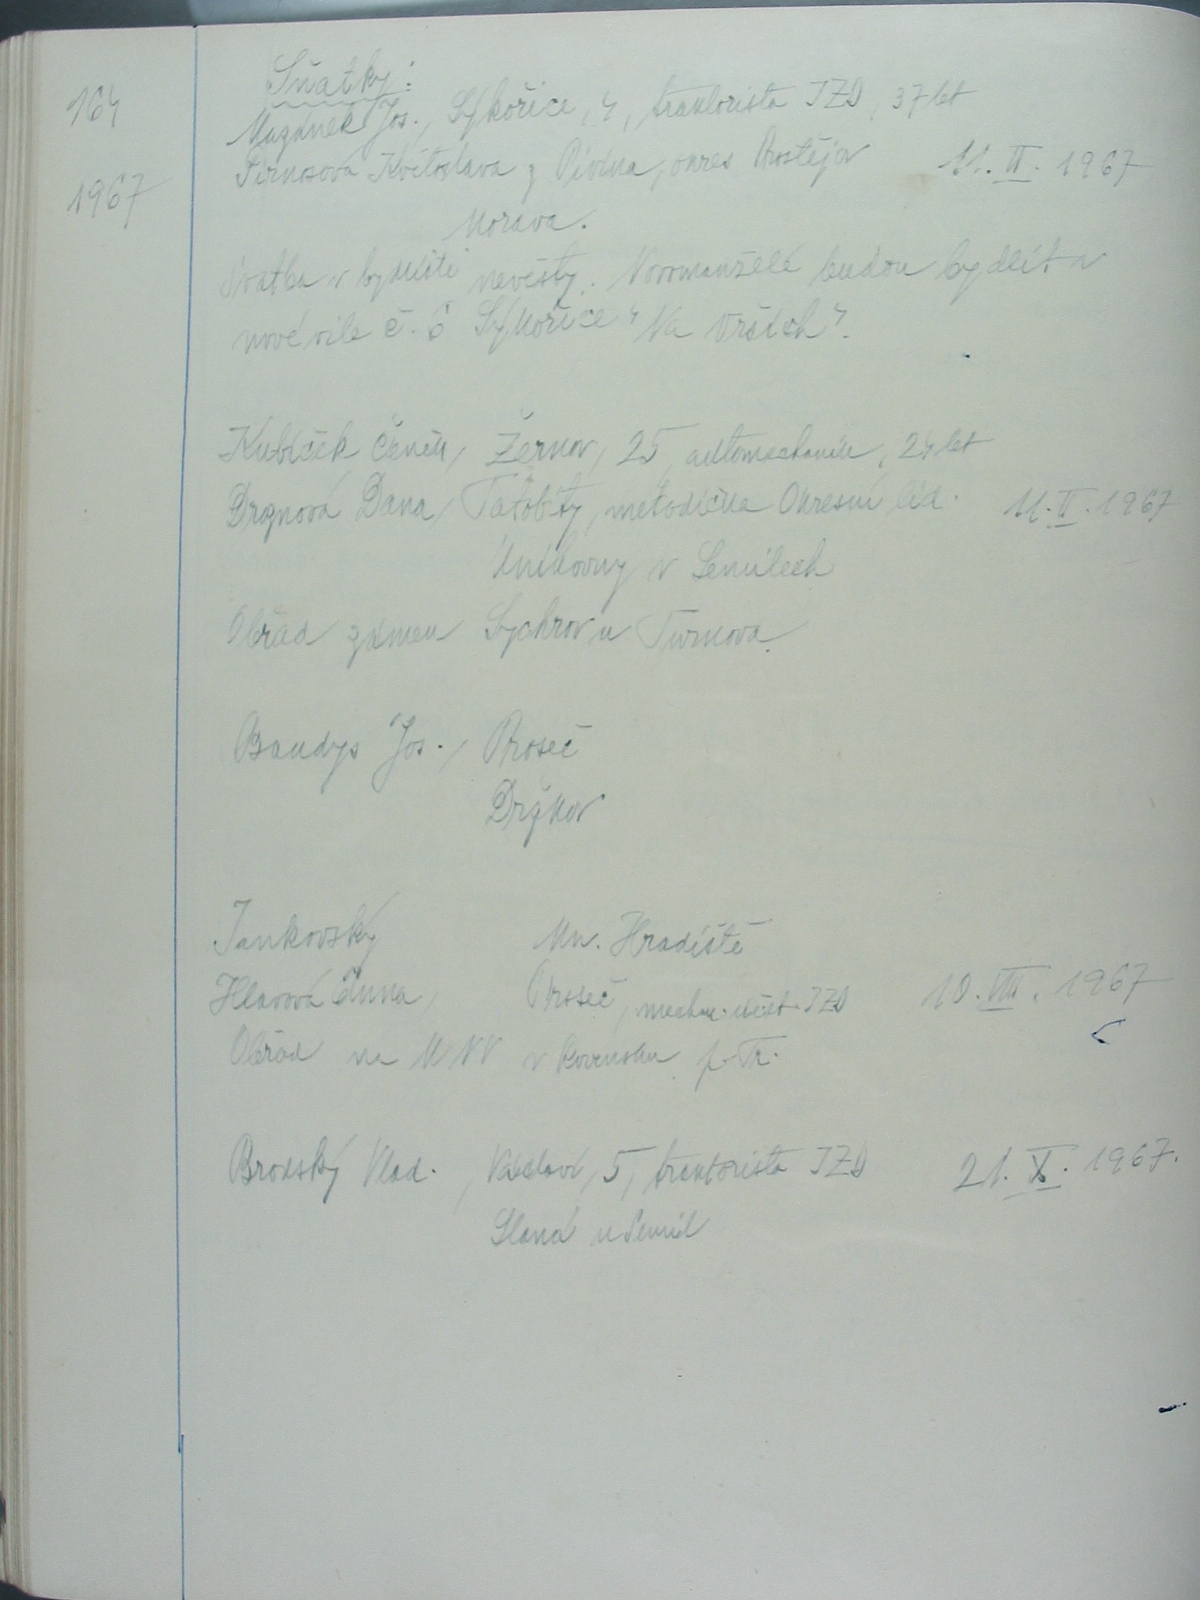 164
1967
Sňatky:
Mazánek Jos., Sýkořice, 4, traktorista JZD, 37 let
Pírnosová Květoslava z Pivína, okres Prostějov 11. II. 1967
Morava.
Svatba v bydlišti nevěsty. Novomanželé budou bydlit v
nové vile č. 6 Sýkořice "Na Vrších".
Kubíček Čeněk, Žernov, 25, automechanik, 24 let
Drznová Dana, Tatobity, metodička Okresní lid. 11. II. 1967
knihovny v Semilech
Obřad zámek Sychrov u Turnova.
Baudys Jos., Proseč
Držkov
Jankovský Mn. Hradiště
Hlavová Anna, Proseč, mechan. účet. JZD 19. VIII. 1967
Obřad na MNV v Rovensku p. Tr.
Brodský Vlad., Václaví, 5, traktorista JZD 21. X. 1967.
Slaná u Semil